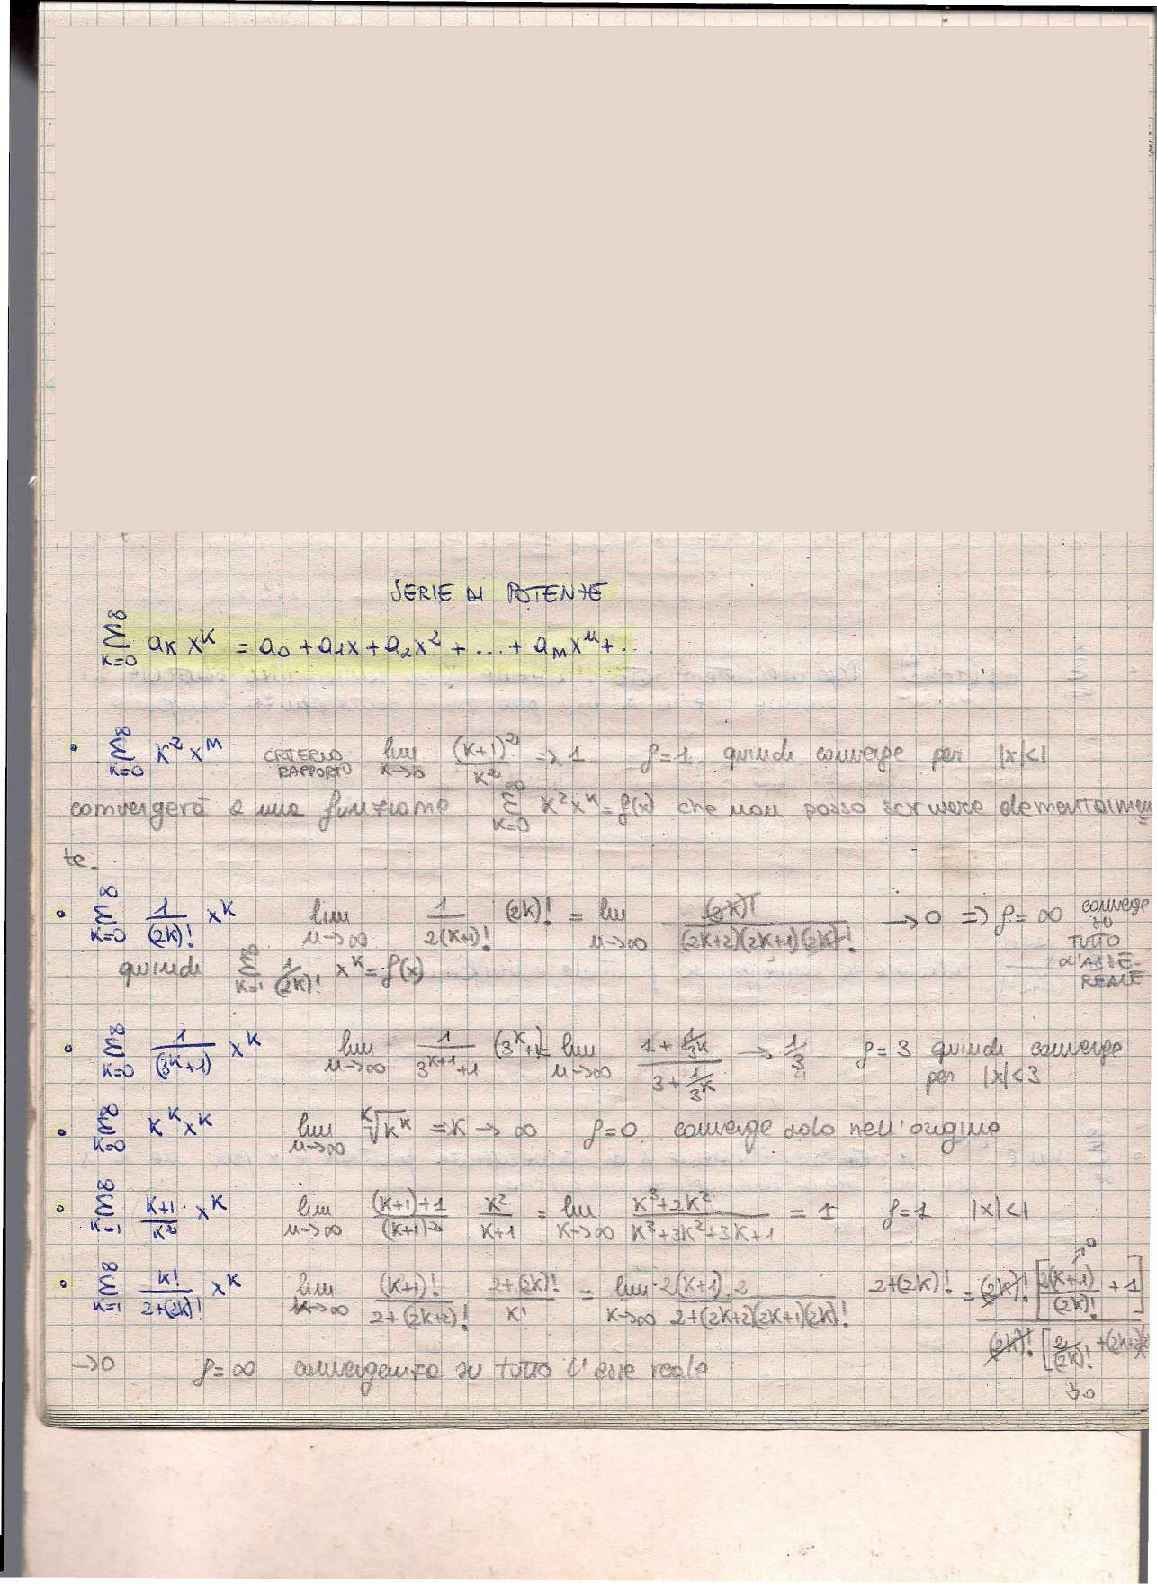 SERIE DI POTENZE
∑_{k=0}^{∞} a_k x^k = a_0 + a_1x + a_2x² + ... + a_n x^n + ..
• ∑_{k=0}^{∞} k² x^n CRITERIO RAPPORTO lim_{k→∞} (k+1)²/k² → 1 ρ=1 quindi converge per |x|<1
convergerà a una funzione ∑_{k=0}^{∞} k² x^k = f(x) che non posso scrivere elementarmen
te.
• ∑_{k=0}^{∞} 1/(2k)! x^k lim_{n→∞} 1/2(k+1)! (2k)! = lim_{n→∞} (2k)!/(2k+2)(2k+1)(2k)! → 0 ⇒ ρ=∞ converge su TUTTO L'ASSE REALE
quindi ∑_{k=1}^{∞} 1/(2k)! x^k = f(x)
• ∑_{k=0}^{∞} 1/(3^k+1) x^k lim_{n→∞} 1/3^{k+1}+1 (3^k+1) = lim_{n→∞} 1+1/3^k / 3+1/3^k → 1/3 ρ=3 quindi converge
per |x|<3
• ∑_{k=0}^{∞} k^k x^k lim_{n→∞} ᵏ√k^k = k → ∞ ρ=0 converge solo nell'origine
• ∑_{k=1}^{∞} k+1/k² x^k lim_{n→∞} (k+1)+1/(k+1)² k²/k+1 = lim_{k→∞} k³+2k²/k³+3k²+3k+1 = 1 ρ=1 |x|<1
• ∑_{k=1}^{∞} k!/2+(2k)! x^k lim_{k→∞} (k+1)!/2+(2k+2)! 2+(2k)!/k! = lim_{k→∞} 2(k+1).2/2+(2k+2)(2k+1)(2k)! 2+(2k)! = (2k)! [2(k+1)/(2k)! + 1] / (2k)! [2/(2k)!
→0 ρ=∞ convergenza su tutto l'asse reale